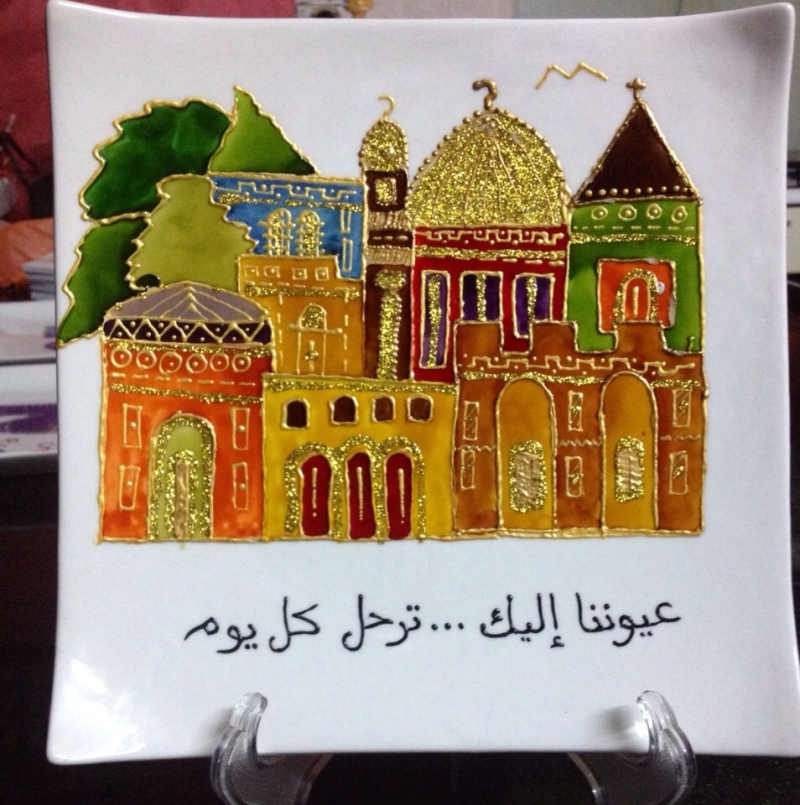 عيوننا إليك ... ترحل كل يوم